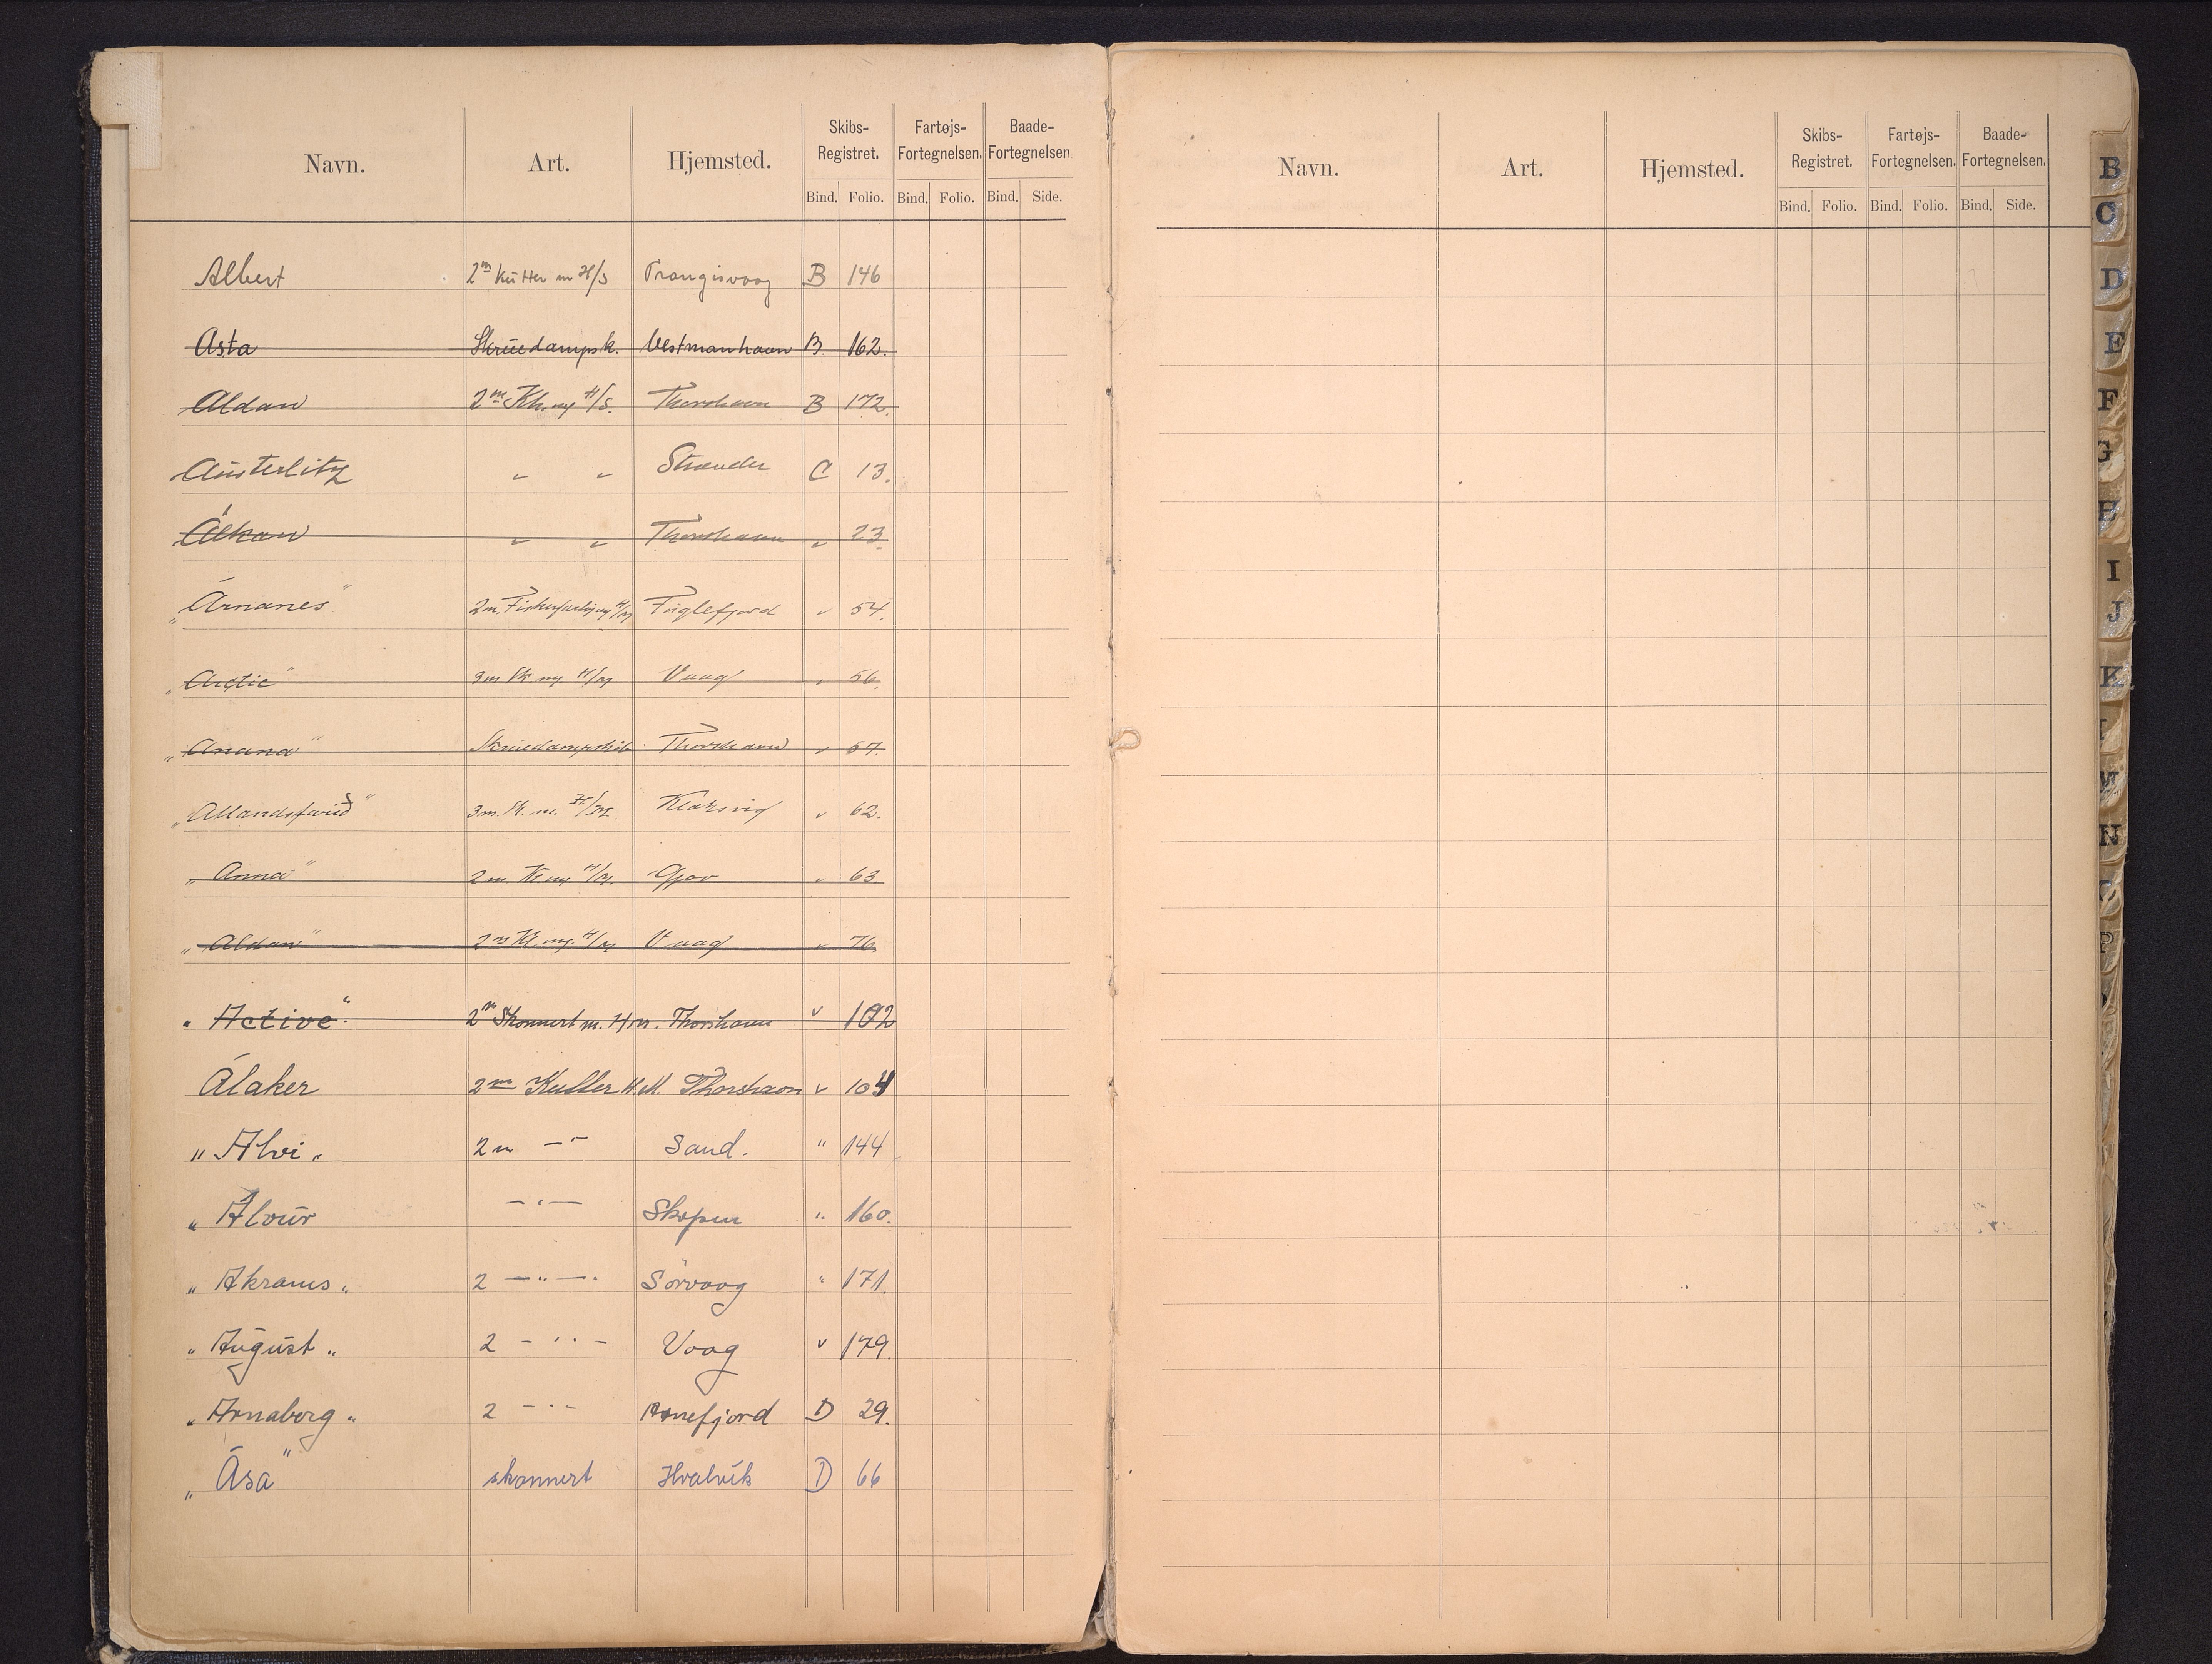 Navn. Art. Hjemsted. Skibs-Registret. Fartøjs-Fortegnelsen. Baade-Fortegnelsen
Bind. Folio. Bind. Folio. Bind. Side.
Albert 2m Kutter m H/S Trangisvaag B 146
Asta Skruedampsk. Vestmanhavn B. 162.
Aldan 2m Kk. m/ H/S. Thorshavn B 172.
Austerlitz " " Strander C 13.
Álkan " " Thorshavn " 23.
„Árnanes" 2m. Fiskefartøj m/ H/M Fuglefjord " 54.
„Arctic" 3m Sk m/ H/M Vaag " 56.
„Anana" Skruedampskib Thorshavn " 57.
„Allandsfarið" 3m. Sk. m. H/M Klaksvig " 62.
„Anna" 2m. Kt m/ H/M. Gjov " 63
„Aldan" 2m Kt. m/ H/M Vaag " 76
„Active" 2m Skonnert m. H/M. Thorshavn " 102
Álaker 2m Kutter H.M. Thorshavn " 104
„Alvi„ 2m —"— Sand. " 144
„Alvur —"— Skopun " 160.
„Akranes„ 2 —"— Sørvaag " 171.
„August„ 2 —"— Vaag " 179.
„Arnaberg„ 2 —"— Arnefjord D 29.
„Ása" skonnert Hvalvík D 66
Navn. Art. Hjemsted. Skibs-Registret. Fartøjs-Fortegnelsen. Baade-Fortegnelsen.
Bind. Folio. Bind. Folio. Bind. Side.
B
C
D
E
F
G
H
I
J
K
M
N
P